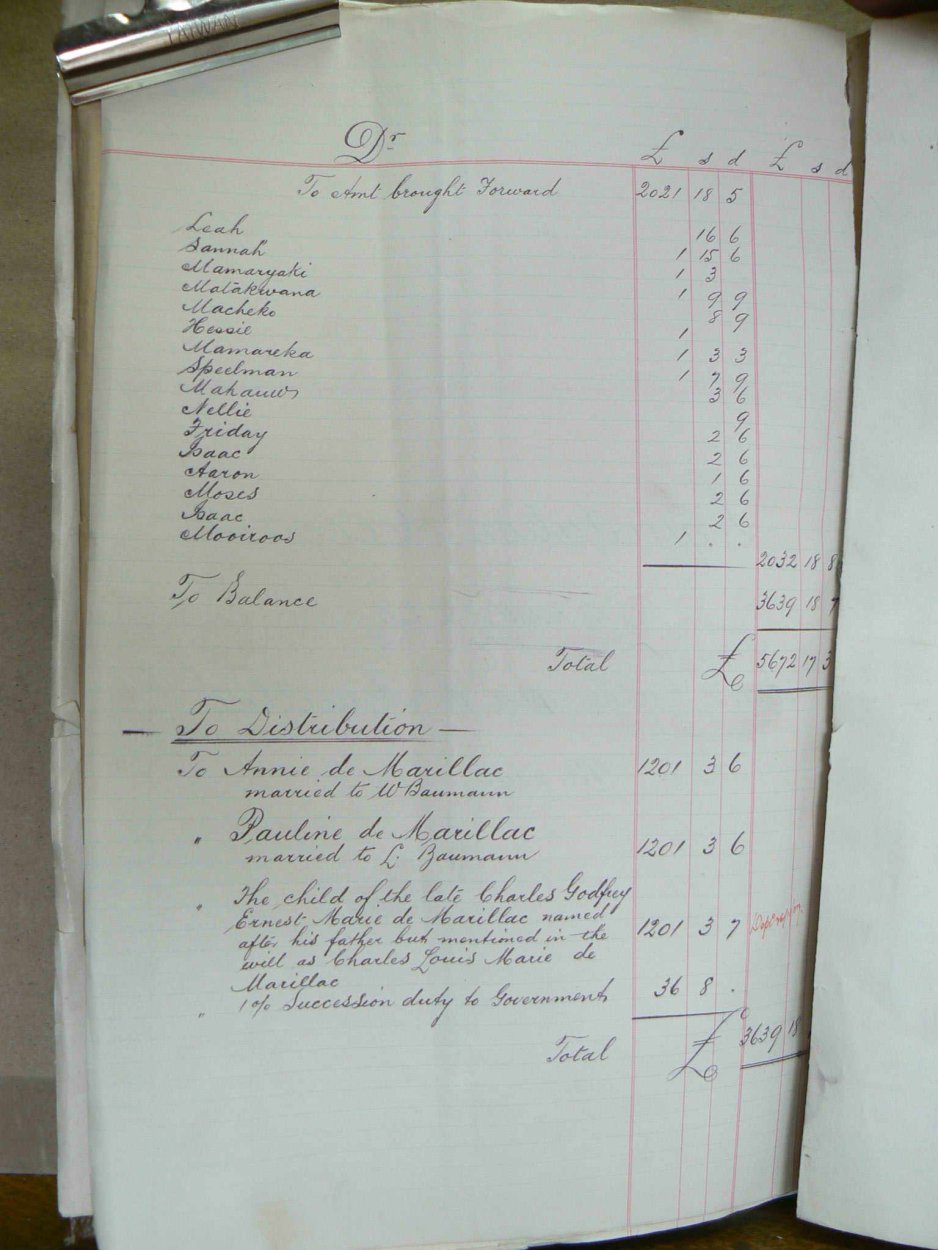 TAIWAN
Dr £ s d £ s d
To Amt brought Forward 2021 18 5
Leah 16 6
Sannah 1 15 6
Mamaryaki 1 3
Matakwana 1 9 9
Macheko 8 9
Hessie 1
Mamareka 1 3 3
Speelman 1 7 9
Mahauws 3 6
Nellie 9
Friday 2 6
Isaac 2 6
Aaron 1 6
Moses 2 6
Isaac 2 6
Mooiroos 1 . .
2032 18 8
To Balance 3639 18 7
Total £ 5672 17 3
— To Distribution —
To Annie de Marillac 1201 3 6
married to W Baumann
" Pauline de Marillac
married to L. Baumann 1201 3 6
" The child of the late Charles Godfrey
Ernest Marie de Marillac named
after his father but mentioned in the 1201 3 7
will as Charles Louis Marie de
Marillac
" 1% Succession duty to Government 36 8 .
Total £ 3639 18